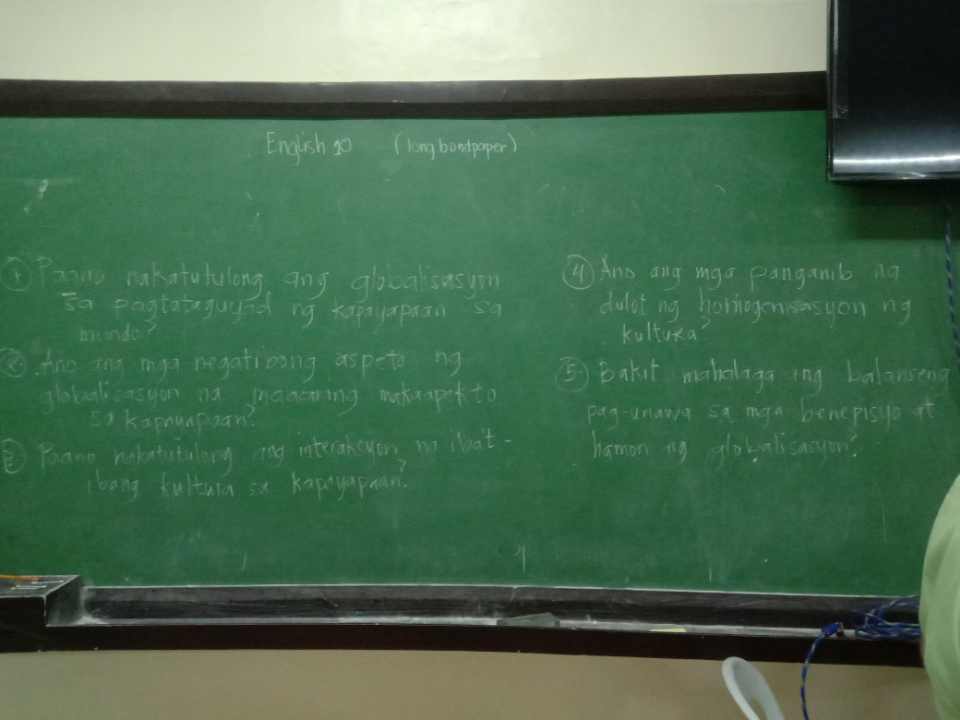 English 10 (long bondpaper)
① Paano nakatutulong ang globalisasyon
sa pagtataguyod ng kapayapaan sa
mundo?
② Ano ang mga negatibong aspeto ng
globalisasyon na maaaring makaapekto
sa kapayapaan?
③ Paano nakatutulong ang interaksyon na iba't-
ibang kultura sa kapayapaan?
④ Ano ang mga panganib ng
dulot ng homogenisasyon ng
kultura?
⑤ Bakit mahalaga ang balanseng
pag-unawa sa mga benepisyo at
hamon ng globalisasyon?